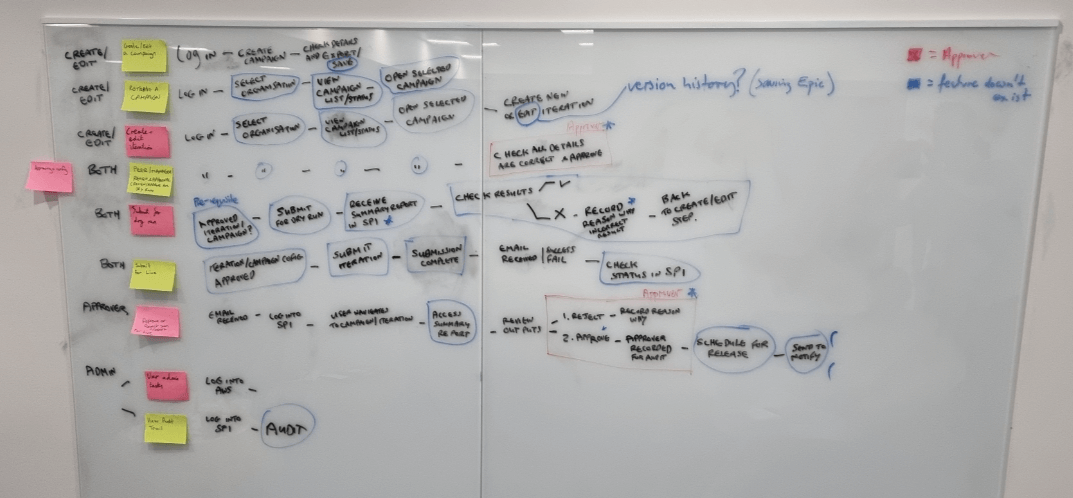 CREATE/
EDIT
LOG IN - CREATE CAMPAIGN - CHECK DETAILS AND EXPORT/ SAVE
CREATE/
EDIT
CAMPAIGN
LOG IN - SELECT ORGANISATION - VIEW CAMPAIGN LIST/STATUS - OPEN SELECTED CAMPAIGN
CREATE/
EDIT
Create/
edit
LOG IN - SELECT ORGANISATION - VIEW CAMPAIGN LIST/STATUS - OPEN SELECTED CAMPAIGN - CREATE NEW OR EDIT ITERATION
version history? (Saving Epic)
BOTH
" - " - " - " -
Approver *
CHECK ALL DETAILS
ARE CORRECT & APPROVE
BOTH
Submit for
dry run
Pre-requisite
APPROVED ITERATION/ CAMPAIGN? - SUBMIT FOR DRY RUN - RECEIVE SUMMARY REPORT IN SPI * - CHECK RESULTS ✓
X - RECORD REASON WHY INCORRECT RESULT * - BACK TO CREATE/EDIT STEP.
BOTH
Submit
for Live
ITERATION/CAMPAIGN CONFIG APPROVED - SUBMIT ITERATION - SUBMISSION COMPLETE - EMAIL RECEIVED | SUCCESS FAIL - CHECK STATUS IN SPI
APPROVER
EMAIL RECEIVED - LOG INTO SPI - USER NAVIGATES TO CAMPAIGN/ITERATION - ACCESS SUMMARY REPORT - REVIEW OUTPUTS
Approver *
1. REJECT - RECORD REASON WHY
2. APPROVE - APPROVER RECORDED FOR AUDIT - SCHEDULE FOR RELEASE - SEND TO NOTIFY
ADMIN
LOG INTO AWS -
LOG INTO SPI - AUDIT
= Approver
= feature doesn't
exist